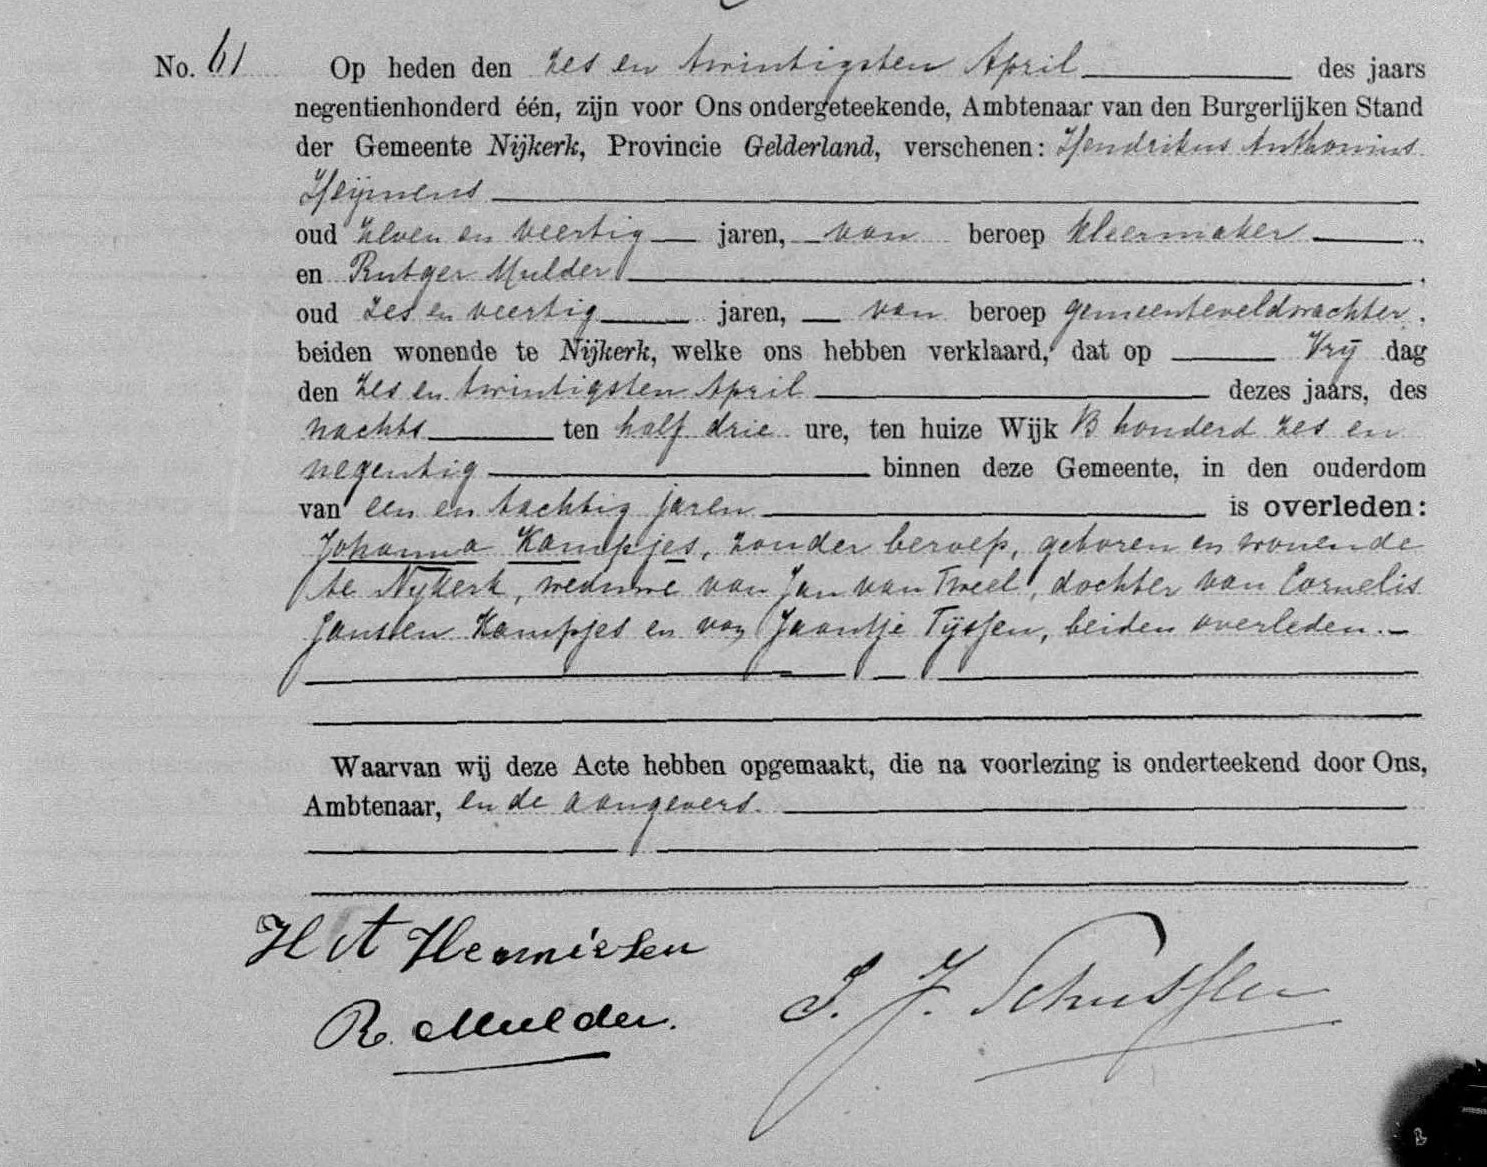 No. 61 Op heden den zes en twintigsten April des jaars
negentienhonderd één, zijn voor Ons ondergeteekende, Ambtenaar van den Burgerlijken Stand
der Gemeente Nijkerk, Provincie Gelderland, verschenen: Hendrikus Anthonius
Heijmens
oud zeven en veertig jaren, van beroep kleermaker
en Rutger Mulder
oud zes en veertig jaren, van beroep gemeenteveldwachter,
beiden wonende te Nijkerk, welke ons hebben verklaard, dat op Vrij dag
den zes en twintigsten April dezes jaars, des
nachts ten half drie ure, ten huize Wijk B honderd zes en
negentig binnen deze Gemeente, in den ouderdom
van een en tachtig jaren is overleden:
Johanna Kampjes, zonder beroep, geboren en wonende
te Nijkerk, weduwe van Jan van Tweel, dochter van Cornelis
Jansen Kampjes en van Jaantje Tijssen, beiden overleden.
Waarvan wij deze Acte hebben opgemaakt, die na voorlezing is onderteekend door Ons,
Ambtenaar, en de aangevers.
H A
R. Mulder.